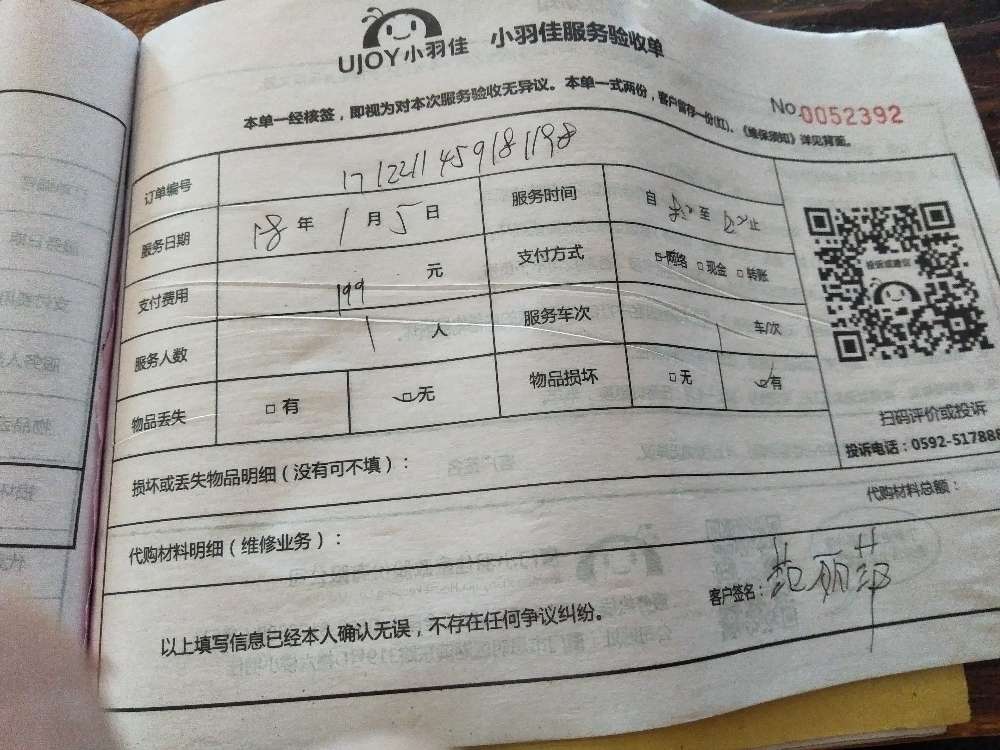 UJOY小羽佳 小羽佳服务验收单
本单一经核签，即视为对本次服务验收无异议。本单一式两份，客户留存一份(红)、《维保须知》详见背面。
No.0052392
订单编号 171221145918 1198
服务日期 18年1月5日 服务时间 自 至 止
支付费用 199元 支付方式 □网络 □现金 □转账
服务人数 1人 服务车次 车/次
物品丢失 □有 □无 物品损坏 □无 □有
投诉或建议
扫码评价或投诉
投诉电话：0592-517888
损坏或丢失物品明细（没有可不填）：
代购材料明细（维修业务）： 代购材料总额：
以上填写信息已经本人确认无误，不存在任何争议纠纷。 客户签名：